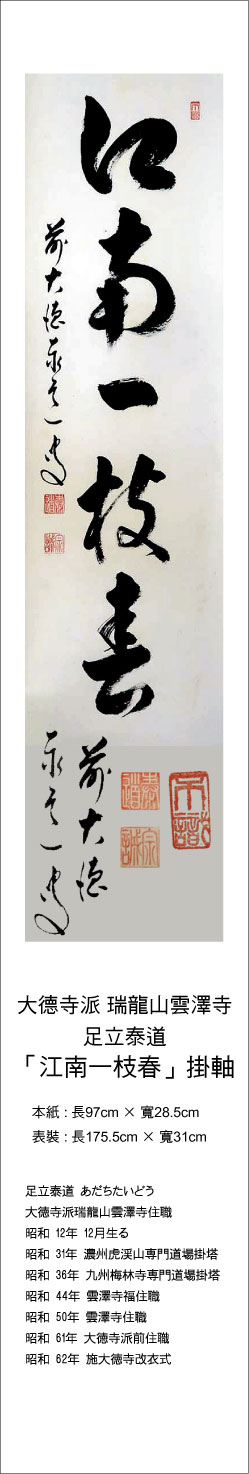 江南一枝春
前大徳泰道一叟
前大徳
泰道一叟
不識
泰道
宗誠
大德寺派 瑞龍山雲澤寺
足立泰道
「江南一枝春」掛軸
本紙：長97cm × 寬28.5cm
表裝：長175.5cm × 寬31cm
足立泰道 あだちたいどう
大德寺派瑞龍山雲澤寺住職
昭和 12年 12月生る
昭和 31年 濃州虎渓山専門道場掛塔
昭和 36年 九州梅林寺専門道場掛塔
昭和 44年 雲澤寺福住職
昭和 50年 雲澤寺住職
昭和 61年 大徳寺派前住職
昭和 62年 施大德寺改衣式